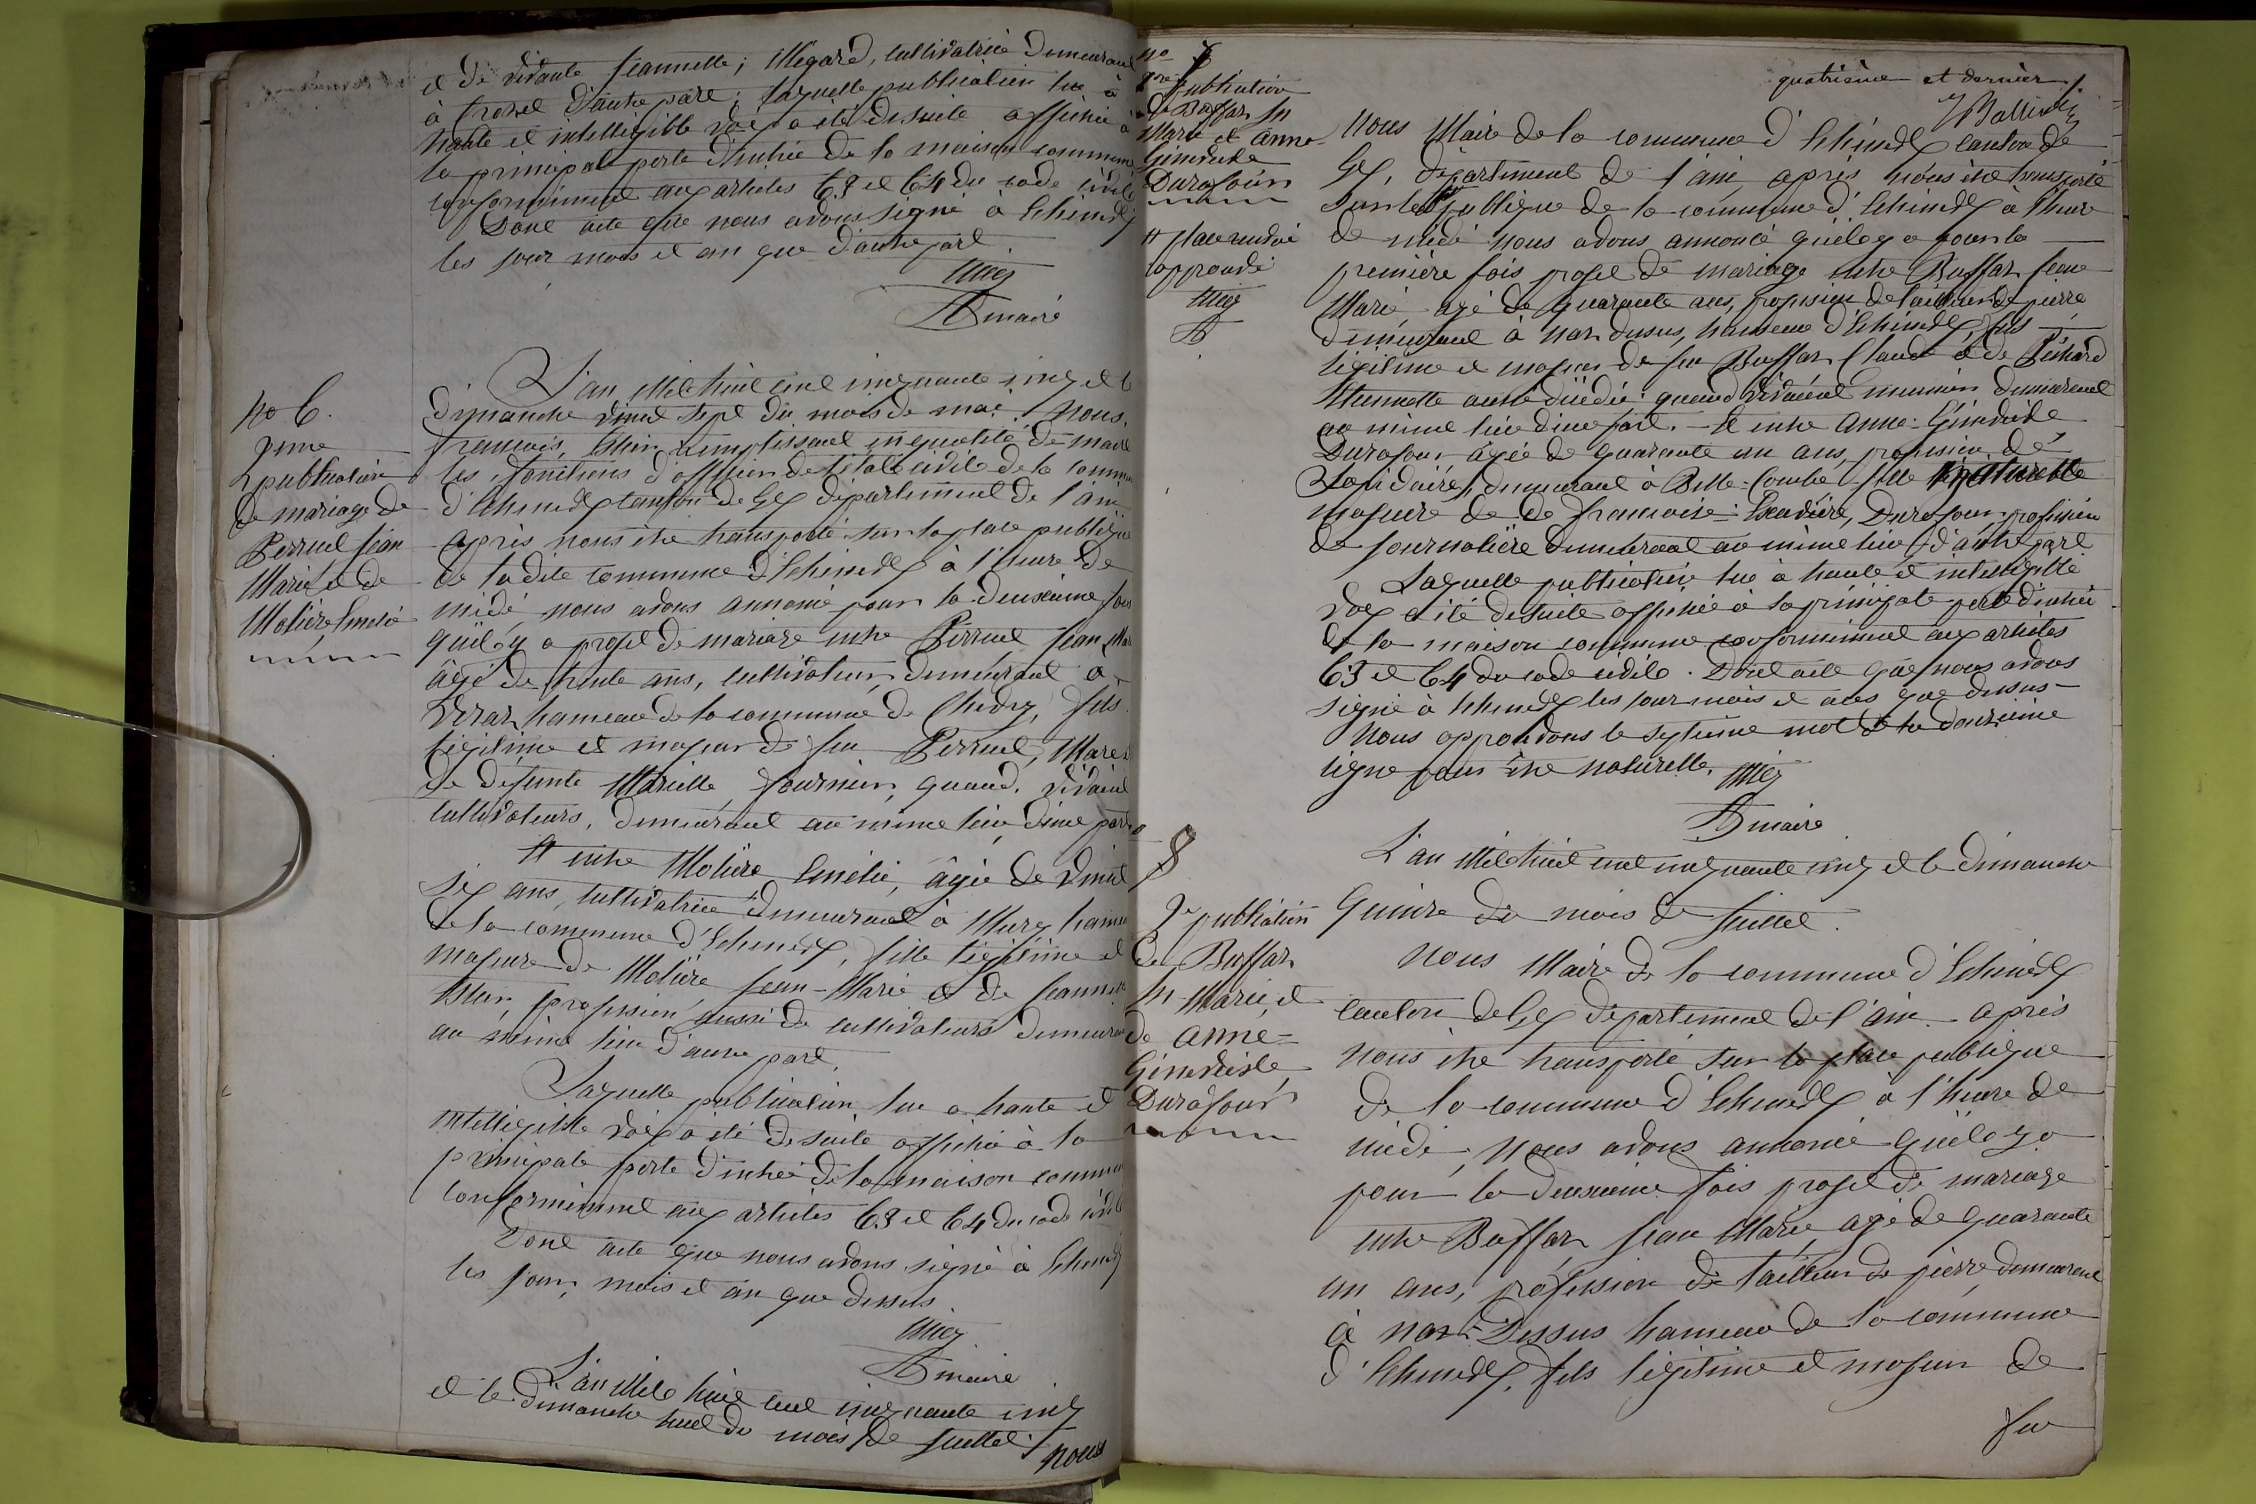 et de vivante Jeannette; Mégard, cultivatrice demeurant
à Crozet d'autre part; laquelle publication lue à
haute et intelligible voix a été desuite affichée à
la principale porte d'entrée de la maison commune
conformément aux articles 63 et 64 du code civile
Dont acte que nous avons signé à Echenevex
les jour mois et an que d'autre part.
maire
no 6.
2eme
publication
de mariage de
Perruet Jean
Marie et de
Molière Emélie
L'an Mil huit cent cinquante cinq et le
dimanche vingt sept du mois de mai. Nous,
francois, remplissant en qualité de maire
les fonctions d'officier de l'état civile de la commune
d'Echenevex canton de Gex département de l'ain
après nous être transporté sur la place publique
de ladite commune d'Echenevex à l'heure de
midi, nous avons annoncé pour la deuxième fois
qu'il y a projet de mariage entre Perruet Jean Marie
âgé de trente ans, cultivateur, demeurant à
Véraz hameau de la commune de Chevry, fils
légitime et majeur de feu Perruet, Marc et
de défunte Mariette fournier, quand vivaient
cultivateurs, demeurant au même lieu d'une part
Et entre Molière Emélie, âgée de vingt
six ans, cultivatrice demeurant à Mury hameau
de la commune d'Echenevex, fille légitime et
majeure de Molière Jean-Marie et de Jeannette
profession aussi de cultivateurs demeurant
au même lieu d'autre part.
Laquelle publication lue a haute et
intelligible voix a été desuite affichée à la
principale porte d'entrée de la maison commune
conformément aux articles 63 et 64 du code civile
Dont acte que nous avons signé à Echenevex
les jour, mois et an que dessus
maire
L'an Mile huit cent cinquante cinq
et le dimanche huit du mois de Juillet.
Nous
quatrième et dernier
no 7
1ere publication
de Buffaz Jn
Marie et Anne
Genevieve
Durafour
# place rendue
approuvé
Nous Maire de la commune d'Echenevex canton de
Gex, département de l'ain, après nous être transporté
sur la # publique de la commune d'Echenevex à l'heure
de midi nous avons annoncé qu'il y a pour la
première fois projet de mariage entre Buffaz Jean
Marie, agé de quarante ans, profession de tailleur de pierre,
demeurant à Naz dessus, hameau d'Echenevex, fils
légitime et majeur de feu Buffaz Claude et de Péchard
Etiennette aussi décédée quand vivaient demeurant
au même lieu d'une part. - Et entre Anne-Genevieve
Durafour âgée de quarante un ans, profession de
Lapidaire, demeurant à Belle-Combe fille naturelle
majeure de de francoise Durafour, profession
de Journalière demeurant au même lieu d'autre part
Laquelle publication lue à haute et intelligible
voix a été desuite affichée à la principale porte d'entrée
de la maison commune conformément aux articles
63 et 64 du code civile. Dont acte que nous avons
signé à Echenevex les jour mois et ans que dessus
Nous approuvons le septième mot de la douzième
ligne pour être naturelle.
maire
8
2e publication
de Buffaz
Jn Marie, et
de Anne=
Genevieve
Durafour
L'an Mil huit cent cinquante cinq et le dimanche
Quinze du mois de Juillet.
Nous Maire de la commune d'Echenevex
canton de Gex département de l'ain. après
nous être transporté sur la place publique
de la commune d'Echenevex à l'heure de
midi, nous avons annoncé qu'il y a
pour la deuxieme fois projet de mariage
entre Buffaz Jean Marie, agé de quarante
un ans, profession de tailleur de pierre, demeurant
à Naz-Dessus hameau de la commune
d'Echenevex, fils légitime et majeur de
feu